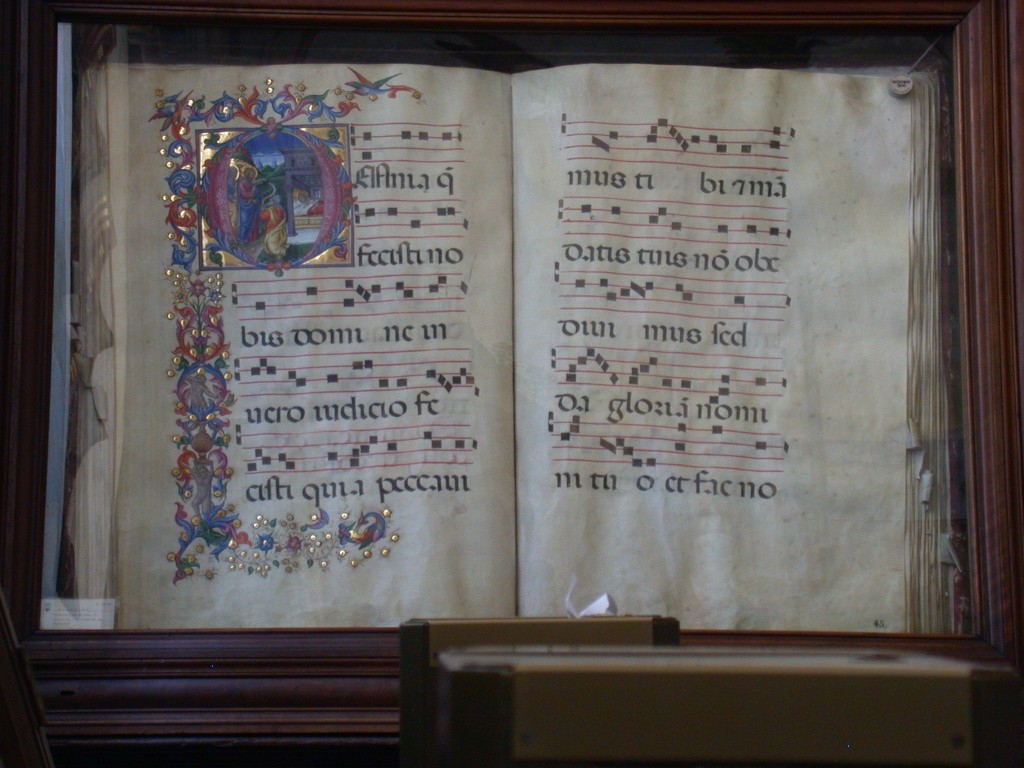 OMNIA q̄
fecisti no
bis domi ne in
uero iudicio fe
cisti quia peccaui
mus ti bi ⁊ mā
datis tuis nō obe
diui mus sed
da gloriā nomi
ni tu o et fac no
45.